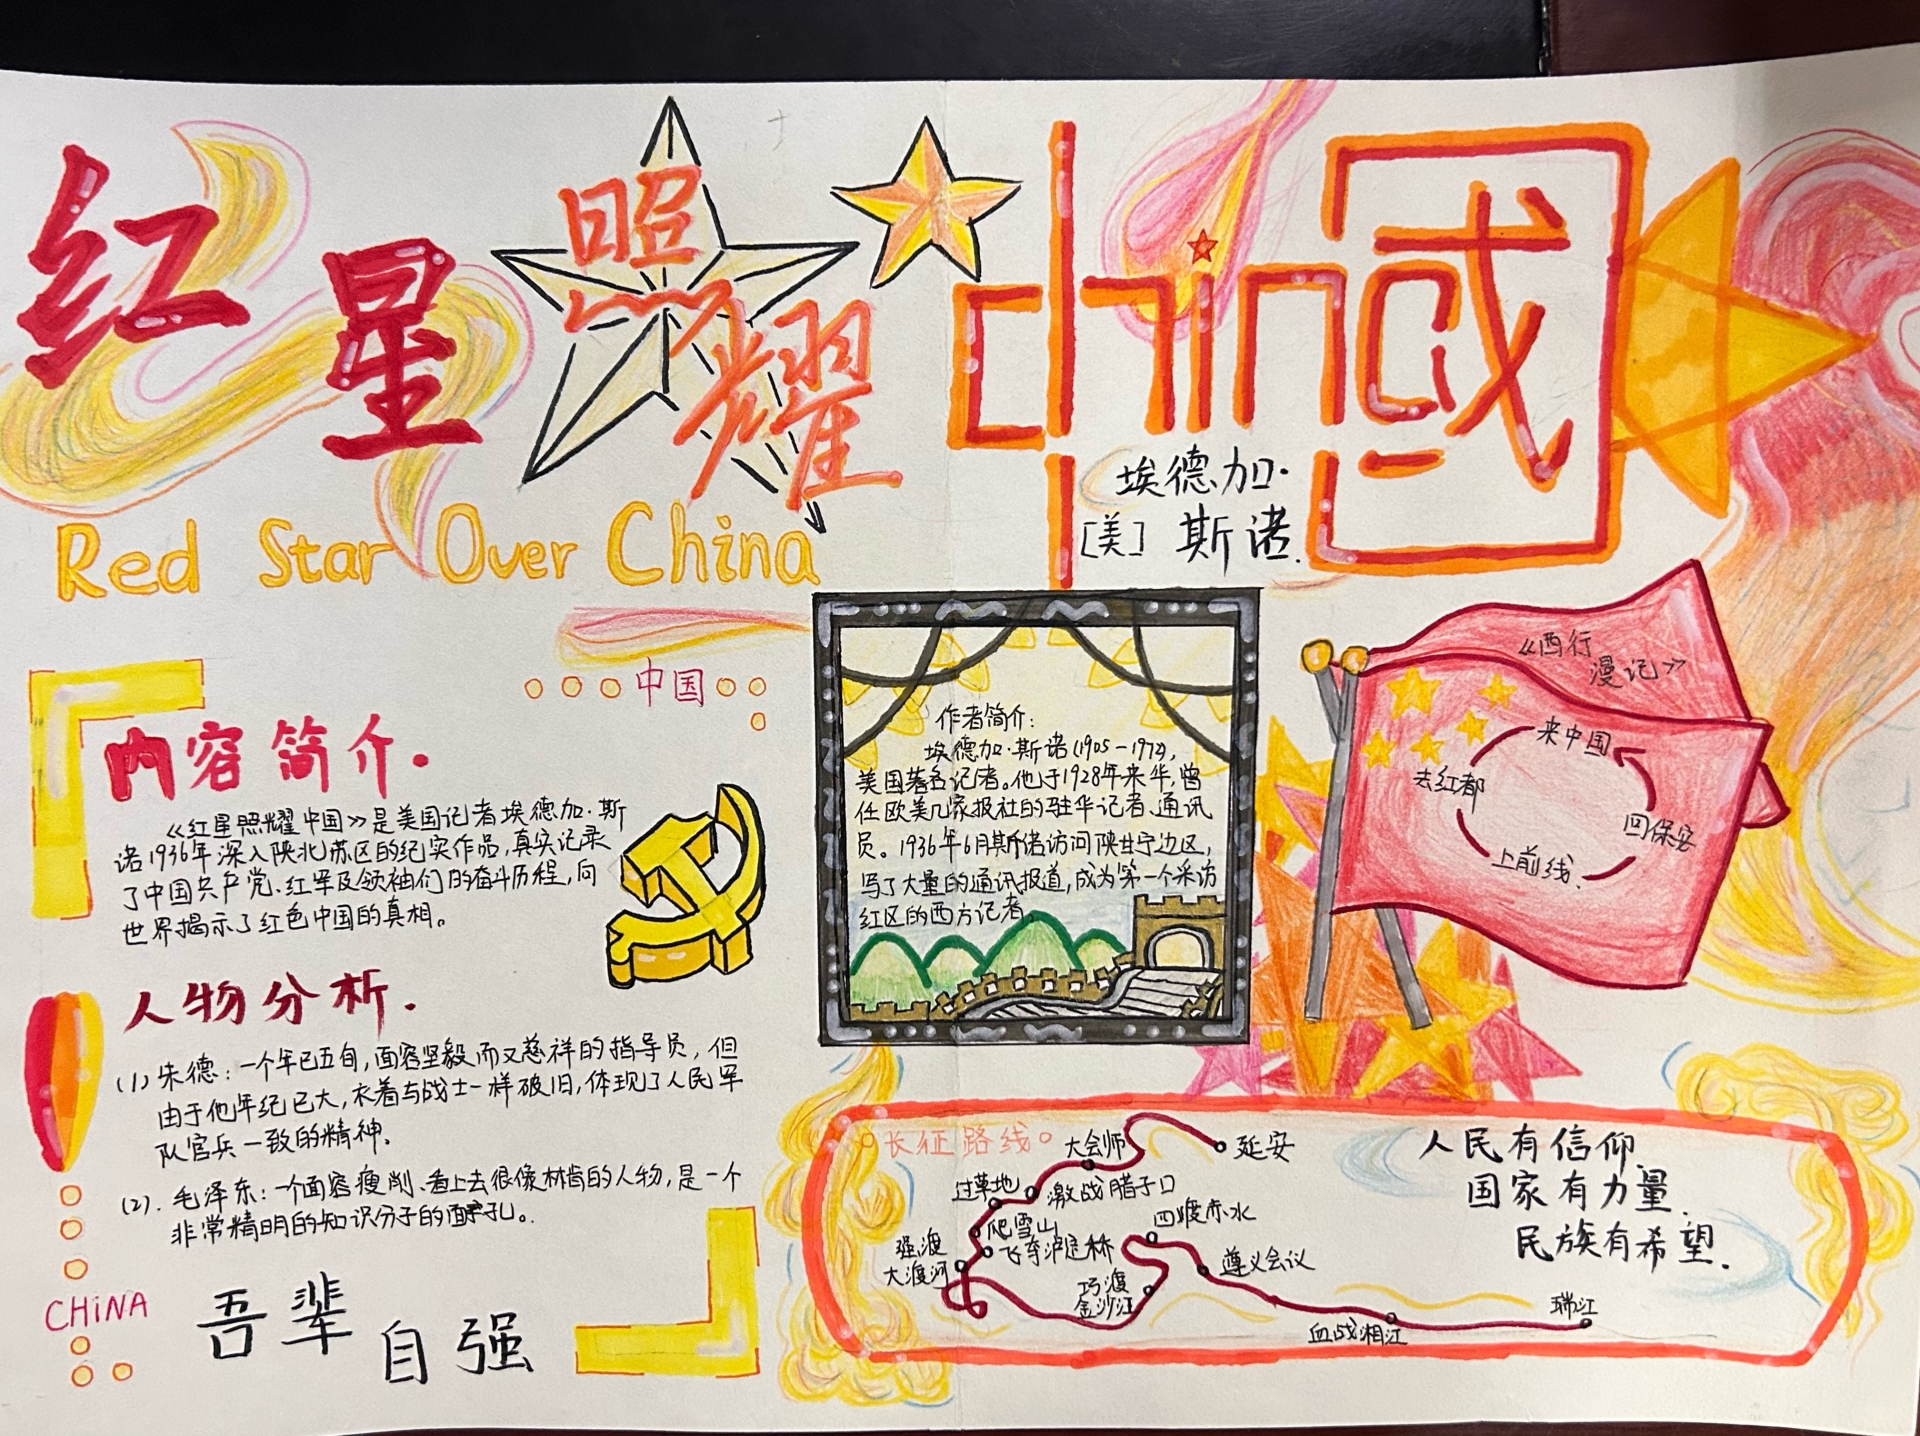 红星照耀中国
china
Red Star Over China
埃德加·
[美] 斯诺.
中国
内容简介.
《红星照耀中国》是美国记者埃德加·斯
诺1936年深入陕北苏区的纪实作品,真实记录
了中国共产党、红军及领袖们的奋斗历程,向
世界揭示了红色中国的真相。
人物分析.
(1) 朱德:一个年已五旬,面容坚毅而又慈祥的指导员,但
由于他年纪已大,衣着与战士一样破旧,体现了人民军
队官兵一致的精神。
(2). 毛泽东:一个面容瘦削、看上去很像林肯的人物,是一个
非常精明的知识分子的面孔。
CHiNA
吾辈自强
作者简介:
埃德加·斯诺(1905-1972),
美国著名记者。他于1928年来华,曾
任欧美几家报社的驻华记者、通讯
员。1936年6月斯诺访问陕甘宁边区,
写了大量的通讯报道,成为第一个采访
红区的西方记者。
《西行
漫记》
来中国
去红都
回保安
上前线
长征路线
大会师
延安
过草地
激战腊子口
爬雪山
飞夺泸定桥
强渡
大渡河
四渡赤水
巧渡
金沙江
遵义会议
血战湘江
瑞江
人民有信仰
国家有力量.
民族有希望.